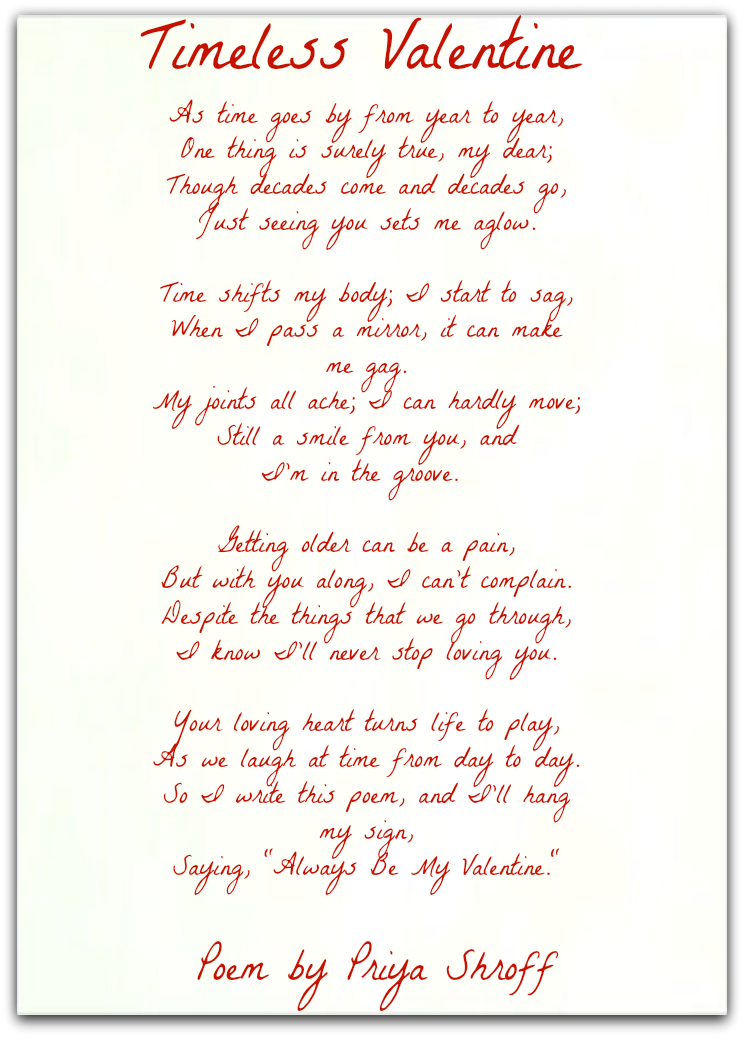 Timeless Valentine
As time goes by from year to year,
One thing is surely true, my dear;
Though decades come and decades go,
Just seeing you sets me aglow.
Time shifts my body; I start to sag,
When I pass a mirror, it can make
me gag.
My joints all ache; I can hardly move;
Still a smile from you, and
I'm in the groove.
Getting older can be a pain,
But with you along, I can't complain.
Despite the things that we go through,
I know I'll never stop loving you.
Your loving heart turns life to play,
As we laugh at time from day to day.
So I write this poem, and I'll hang
my sign,
Saying, "Always Be My Valentine."
Poem by Priya Shroff